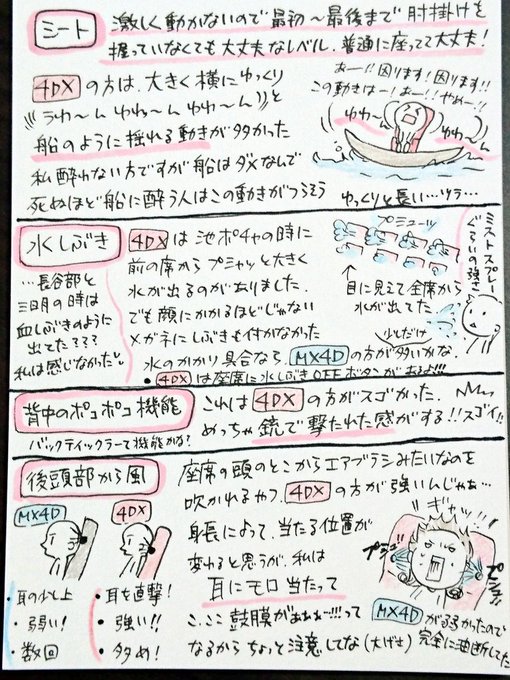 シート
激しく動かないので最初～最後まで肘掛けを
握っていなくても大丈夫なレベル。普通に座ってて大丈夫！
4DX の方は、大きく横にゆっくり
((うわ～ん ゆわ～ん ゆわ～ん))と
船のように揺れる動きが多かった
私酔わない方ですが船はダメなんで
死ぬほど船に酔う人はこの動きがつらそう
あー!!困ります!困ります!!
この動きはー!あー!!やめー!!
ゆわ～ん
ゆわ～ん
ゆっくりと長い…ツラ…
水しぶき
…長谷部と
三日月の時は
血しぶきのように
出てた???
私は感じなかった
4DX は池ポチャの時に
前の席からプシャッと大きく
水が出るのがありました。
でも顔にかかるほどじゃない
メガネにしぶきも付かなかった
水のかかり具合なら、MX4D の方が多いかな。
少しだけ
・4DX は座席に水しぶきOFFボタンがあるよ!!!
プシューッ
↑目に見えて全席から
水が出てた
ミストスプレー
ぐらいの強さ
背中のポコポコ機能
バックティックラーて機能かな?
これは 4DX の方がスゴかった。
めっちゃ銃で撃たれた感がする!!スゴイ!!
後頭部から風
MX4D
4DX
・耳の少し上
・弱い!
・数回
・耳を直撃!
・強い!!
・多め!
座席の頭のとこからエアブラシみたいなのを
吹かれるやつ。4DX の方が強いんじゃぁ…
身長によって、当たる位置が
変わると思うが、私は
耳にモロ当たって
こ、ここ鼓膜がぁぁぁー!!!って
なるからちょっと注意してな(大げさ)
ギャッ!!!
プシュ
プシュ
MX4D がゆるかったので
完全に油断してた